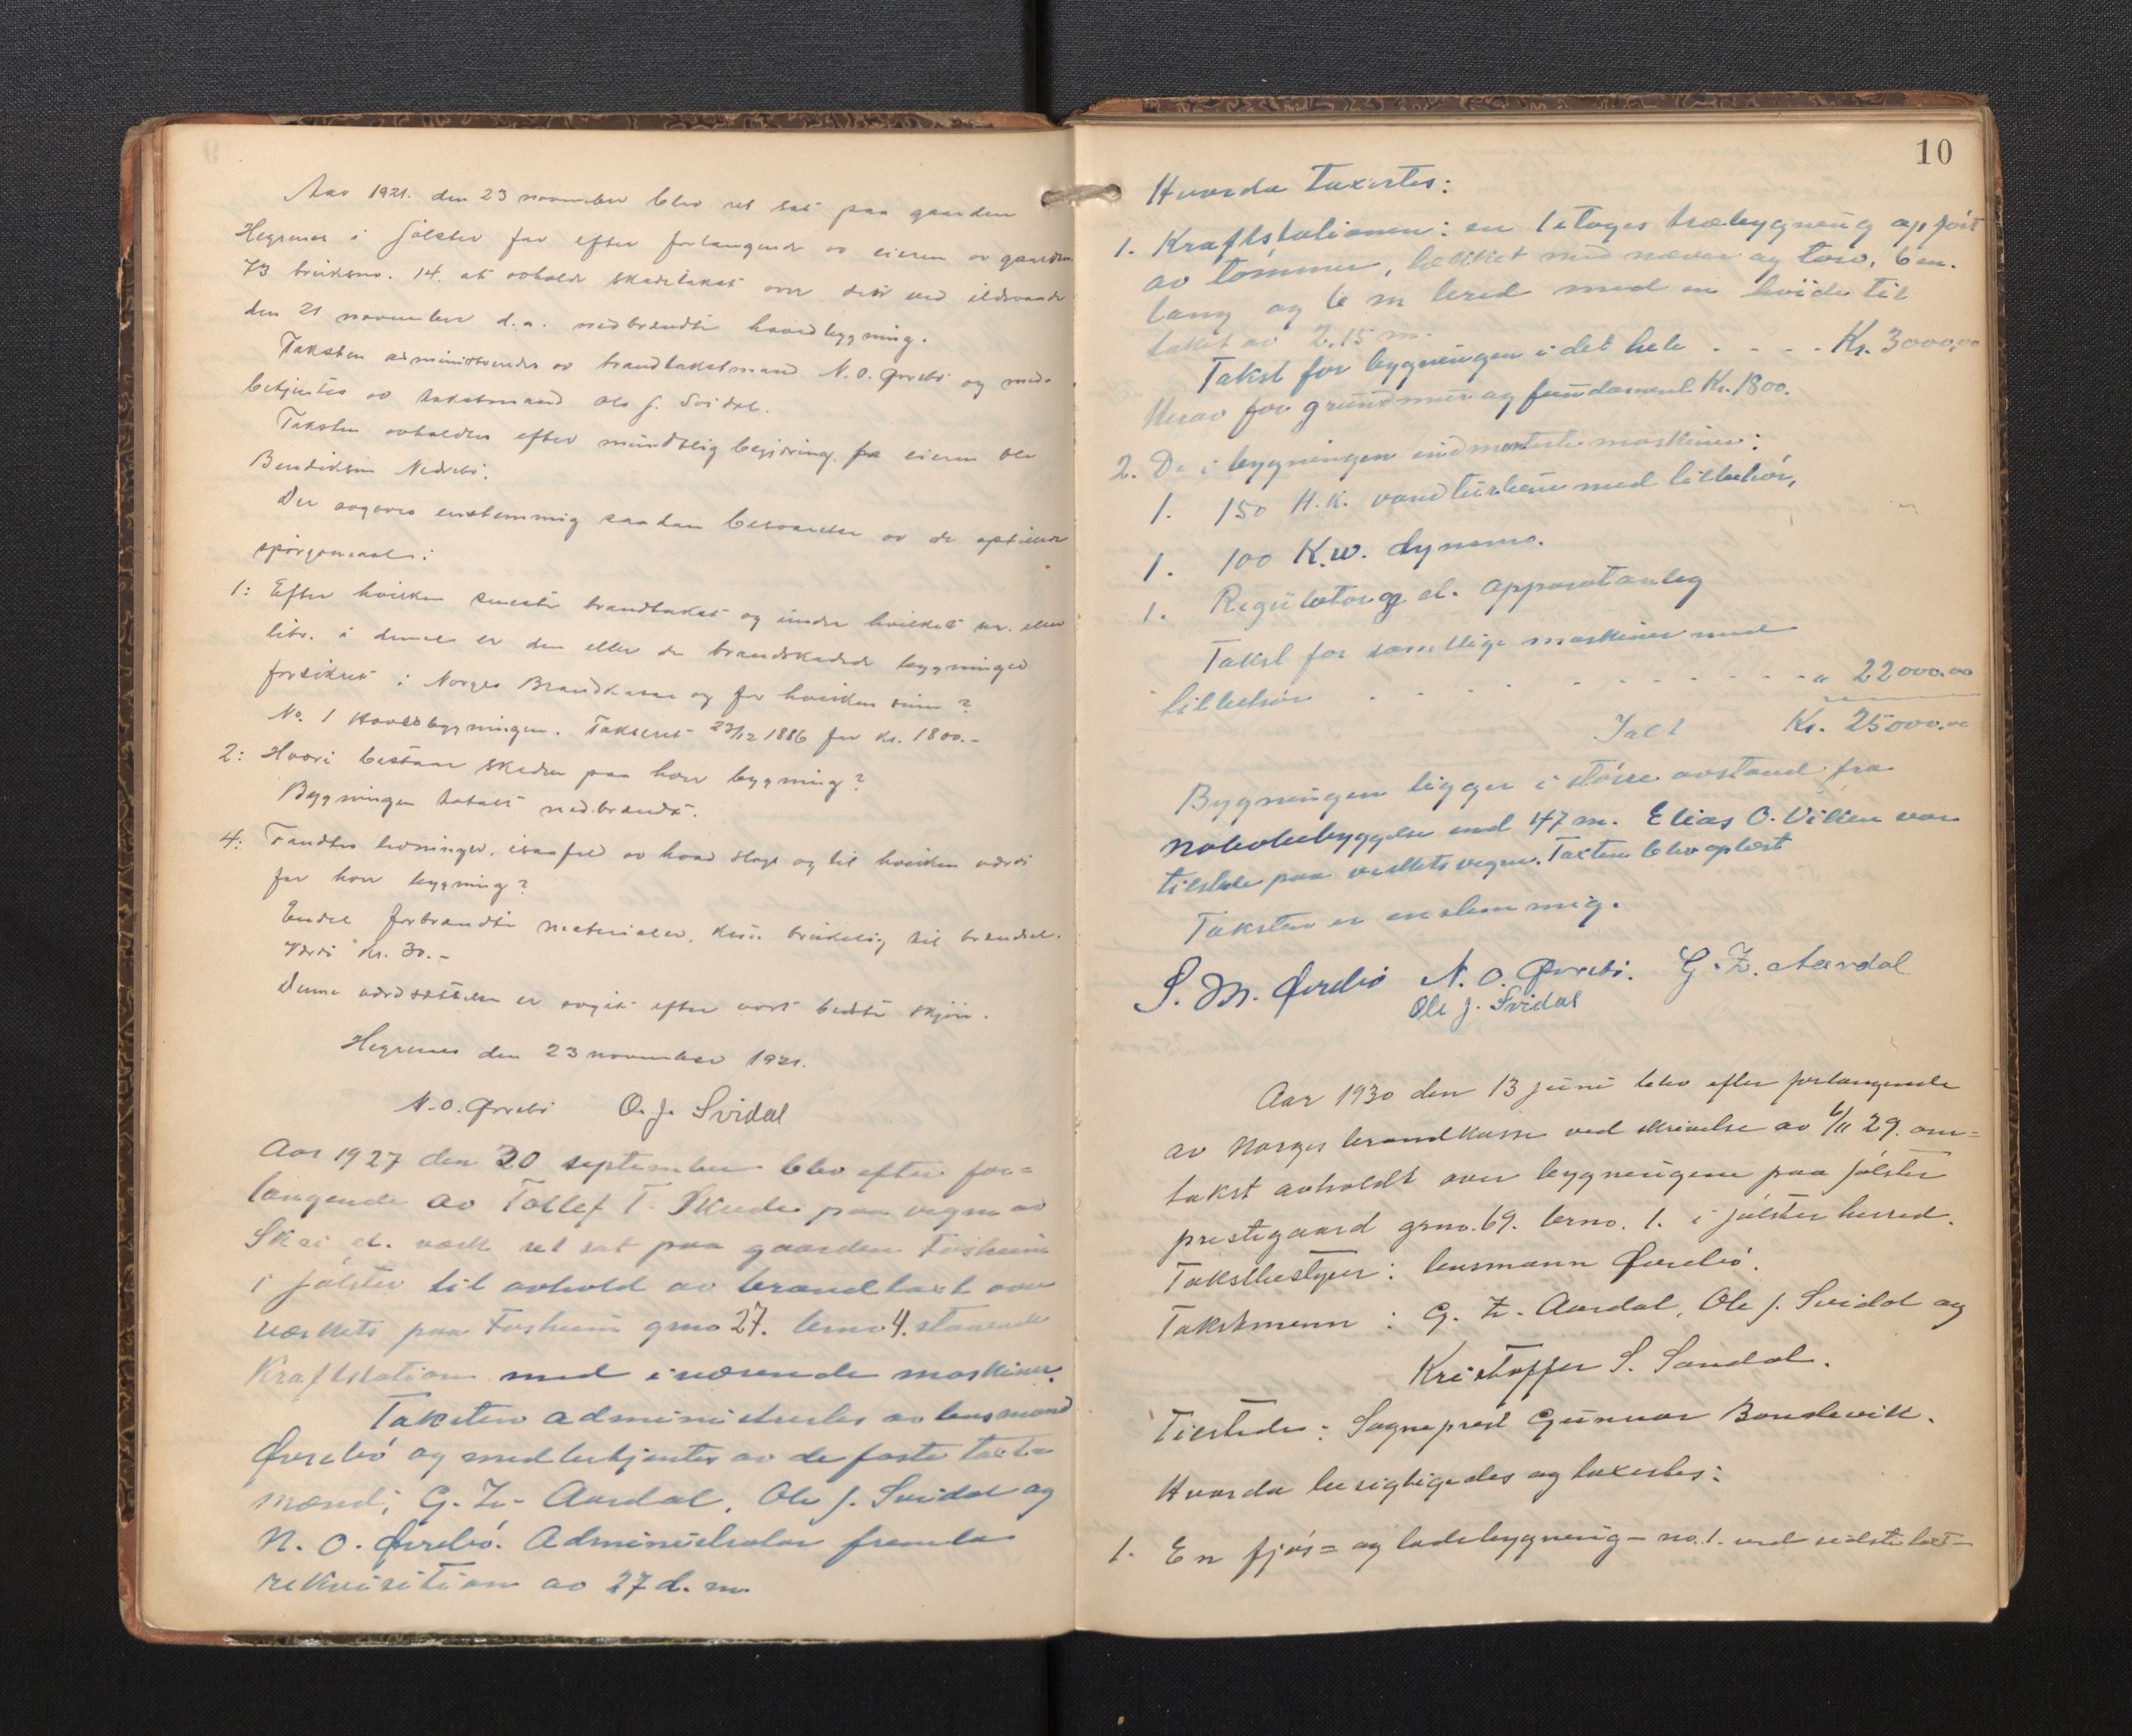 Aar 1921. den 23 november blev ret sat paa gaarden
Hegrenes i Jølster for efter forlangende av eieren av gaarden
73 bruksno. 14. at avholde skadetakst over det ved ildsvaade
den 21 november d.a. nedbrændte hovedbygning.
Taksten administreredes av brandtakstmand N. O. Øvrebö og med-
betjentes av takstmand Ole J. Svidal.
Taksten avholdes efter mundtlig begjæring fra eieren Ole
Bendiksen Nedrebö.
Der avgaves enstemmig saadan besvarelse av de opstillede
spørgsmaal:
1: Efter hvilken seneste brandtakst og under hvilket nr. eller
litr. i denne er den eller de brandskadede bygninger
forsikret i Norges Brandkasse og for hvilken sum?
No. 1 Hovedbygningen. Takseret 23/12 1886 for kr. 1800.-
2: Hvori bestaar skaden paa hver bygning?
Bygningen totalt nedbrændt.
4: Fandtes levninger, isaafald av hvad slags og til hvilken værdi
for hver bygning?
Endel forbrændte materialer, kun brukelig til brændsel.
Værdi kr. 30.-
Denne værdsættelse er avgit efter vort bedste skjön.
Hegrenes den 23 november 1921.
N. O. Øvrebö O. J. Svidal
Aar 1927 den 30 september blev efter for=
langende av Tollef T. Skrede paa vegne av
Skei el. verk ret sat paa gaarden Fosheim
i Jölster til avhold av brandtaxt over
verkets paa Fosheim grno 27. brno 4. staaende
Kraftstation med iværende maskiner.
Taksten administrertes av lensmand
Øvrebö og medbetjentes av de faste taxt=
mænd; G. Z. Aardal, Ole J. Svidal og
N. O. Øvrebö. Administrator fremla
rekvisition av 27 d. m.
10
Hvorda taxertes:
1. Kraftstationen: en 1 etages træbygning opfört
av tömmer, tækket med næver og torv, 6 m.
lang og 6 m bred med en höide til
taket av 2,15 m.
Takst for bygningen i det hele . . . . Kr. 3000,00
Herav for grundmur og fundament Kr. 1800.
2. De i bygningen indmonterte maskiner:
1. 150 H.K. vandturbine med tilbehör,
1. 100 K.W. dynamo.
1. Regulator og el. apparatanlæg
Takst for samtlige maskiner med
tilbehör . . . . . . . . . . . " 22000.00
Ialt Kr. 25000.00
Bygningen ligger i större avstand fra
nabobebyggelse end 47 m. Elias O. Viken var
tilstede paa verkets vegne. Taxten blev oplæst
Taksten er enstemmig.
S. M. Øvrebö N. O. Øvrebö. G. Z. Aardal
Ole J. Svidal
Aar 1930 den 13 juni blev efter forlangende
av Norges brandkasse ved skrivelse av 6/11 29. om=
takst avholdt over bygningene paa Jölster
prestegaard grno. 69. brno. 1. i Jölster herred.
Takstbestyrer: lensmann Øvrebö.
Takstmenn : G. Z. Aardal, Ole J. Svidal og
Kristoffer S. Sandal.
Tilstede: Sogneprest Gunnar Bondevik.
Hvorda besigtigedes og taxertes:
1. En fjös= og ladebygning - no. 1. ved sidste taxt-